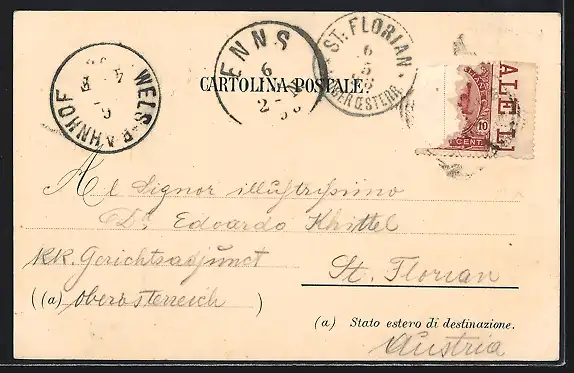 ENNS
6
2
ST. FLORIAN
6
5
OBER OESTERR.
WELS-BAHNHOF
CARTOLINA POSTALE
ALE II
10
CENT
Al Signor illustrissimo
Dr. Edoardo Khittel
KK. Gerichtsadjunct
St. Florian
((a) oberösterreich )
(a) Stato estero di destinazione.
Austria